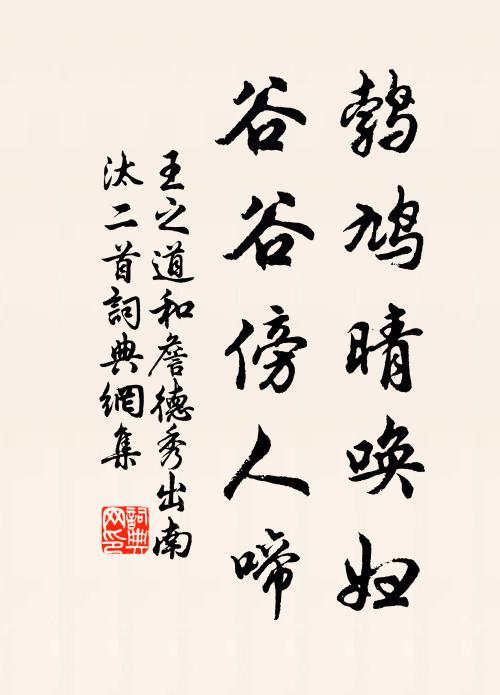 鵓鳩晴唤妇
谷谷傍人啼
王之道和詹德秀出南
汰二首詞典網集
詞典
网印